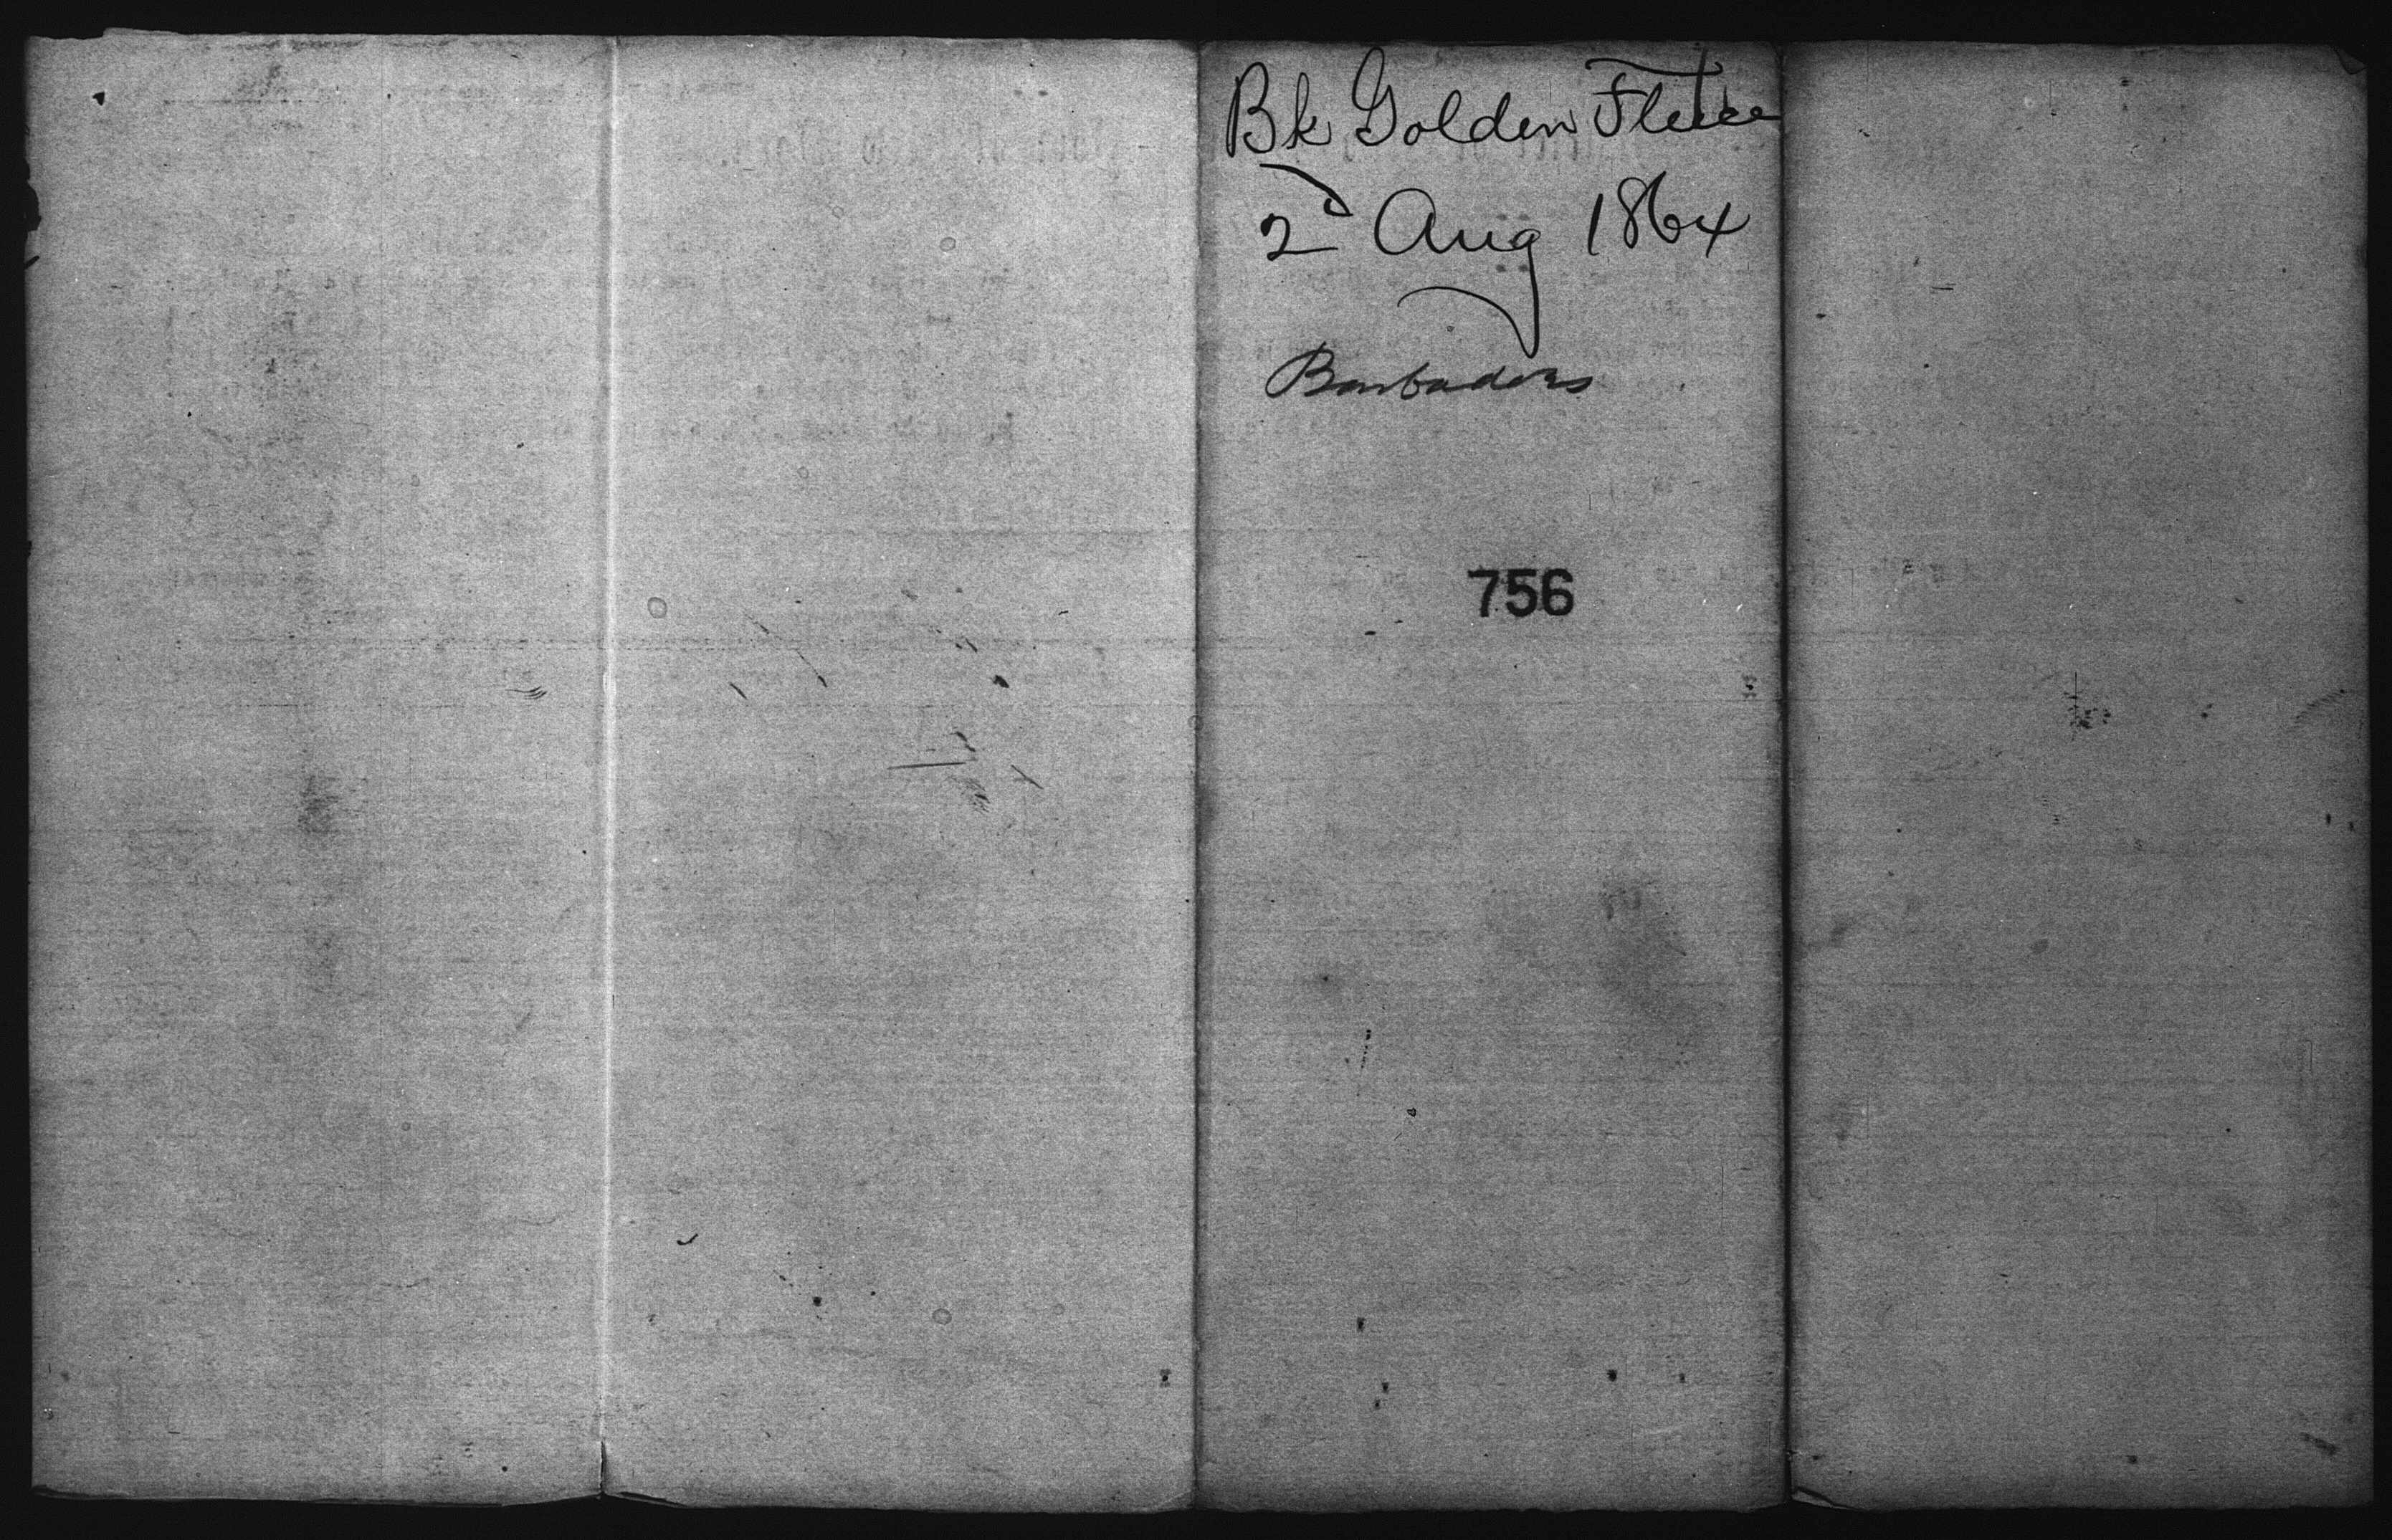 Bk Golden Fleece
2d Aug 1864
Barbadoes
756